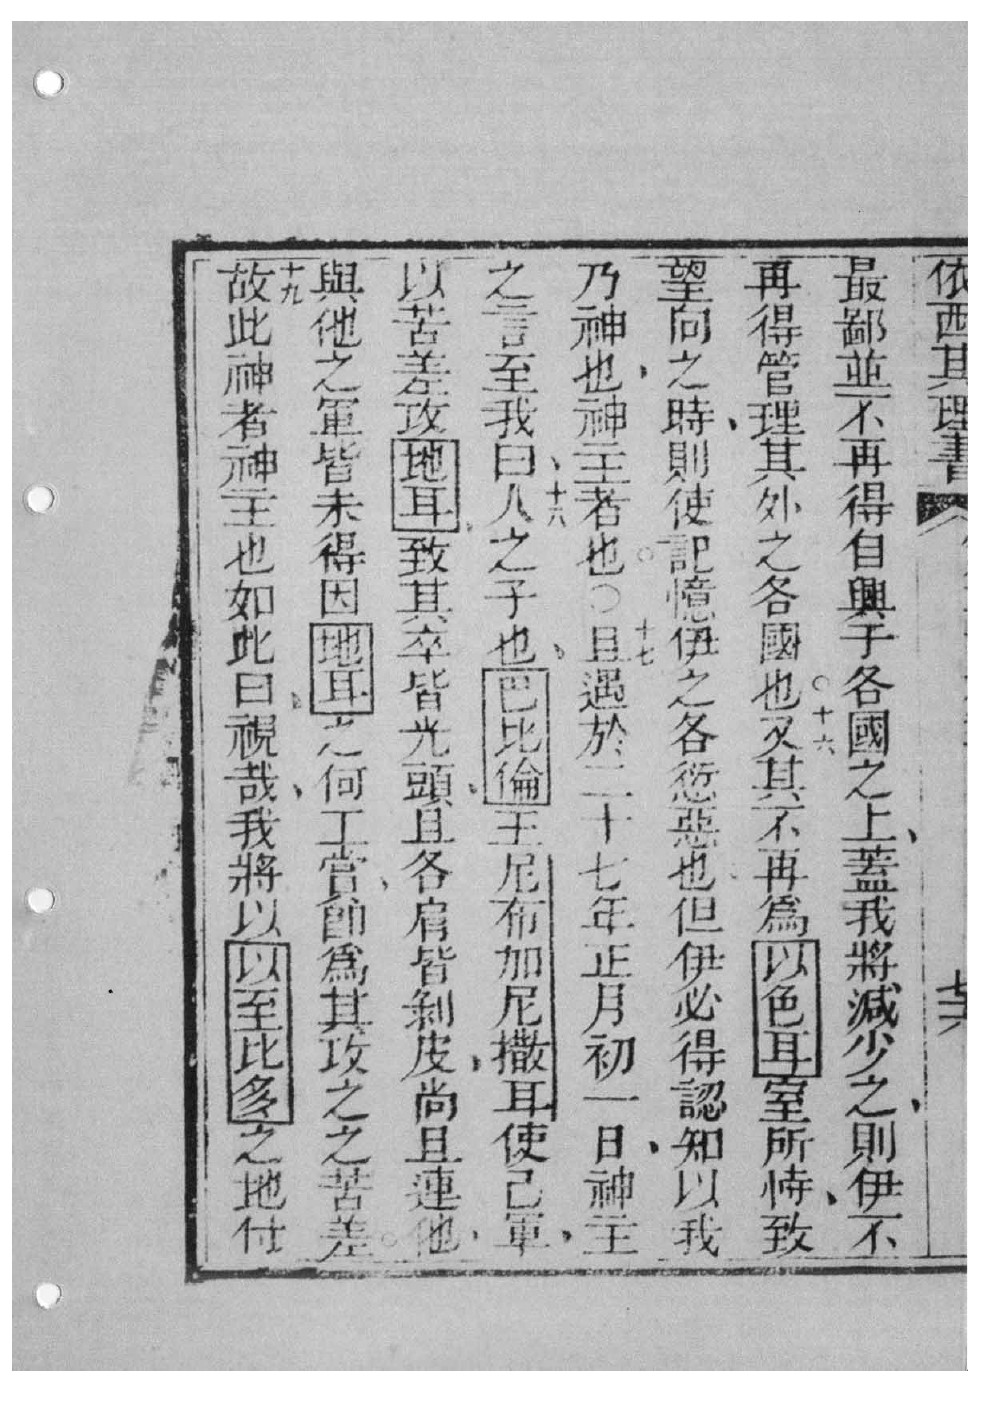 依西其理書
七六
最鄙並不再得自興于各國之上、蓋我將減少之、則伊不
再得管理其外之各國也○十六又其不再爲以色耳室所恃、致
望向之時、則使記憶伊之各愆惡也、但伊必得認知以我
乃神也、神主者也○○十七且遇於二十七年正月初一日、神主
之言至我曰、十八人之子也、巴比倫王尼布加尼撒耳使己軍、
以苦差攻地耳、致其卒皆光頭、且各肩皆剝皮、尚且連他、
與他之軍皆未得因地耳之何工賞、爲其攻之之苦差○
十九故此神者神主也如此曰、視哉、我將以以至比多之地付